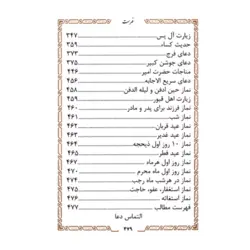 فهرست
زیارت آل یس ۳۴۷
حدیث کساء ۳۵۹
دعای فرج ۳۷۳
دعای جوشن کبیر ۳۷۵
مناجات حضرت امیر ۴۴۶
دعای سریع الاجابه ۴۵۶
نماز حین ادفن و لیله الدفن ۴۵۸
زیارت اهل قبور ۴۵۹
نماز فرزند برای پدر و مادر ۴۶۰
نماز شب ۴۶۱
نماز عید قربان ۴۶۲
نماز عید غدیر ۴۶۳
نماز ۱۰ روز اول ذیحجه ۴۶۴
نماز عید فطر ۴۶۵
نماز روز اول هرماه ۴۶۷
نماز روز اول ماه محرم ۴۷۰
نماز در هرشب ماه رجب ۴۷۴
نماز استغفار، عفو، حاجت ۴۷۵
نماز استغاثه ۴۷۶
فهرست مطالب ۴۷۷
التماس دعا
۴۷۹